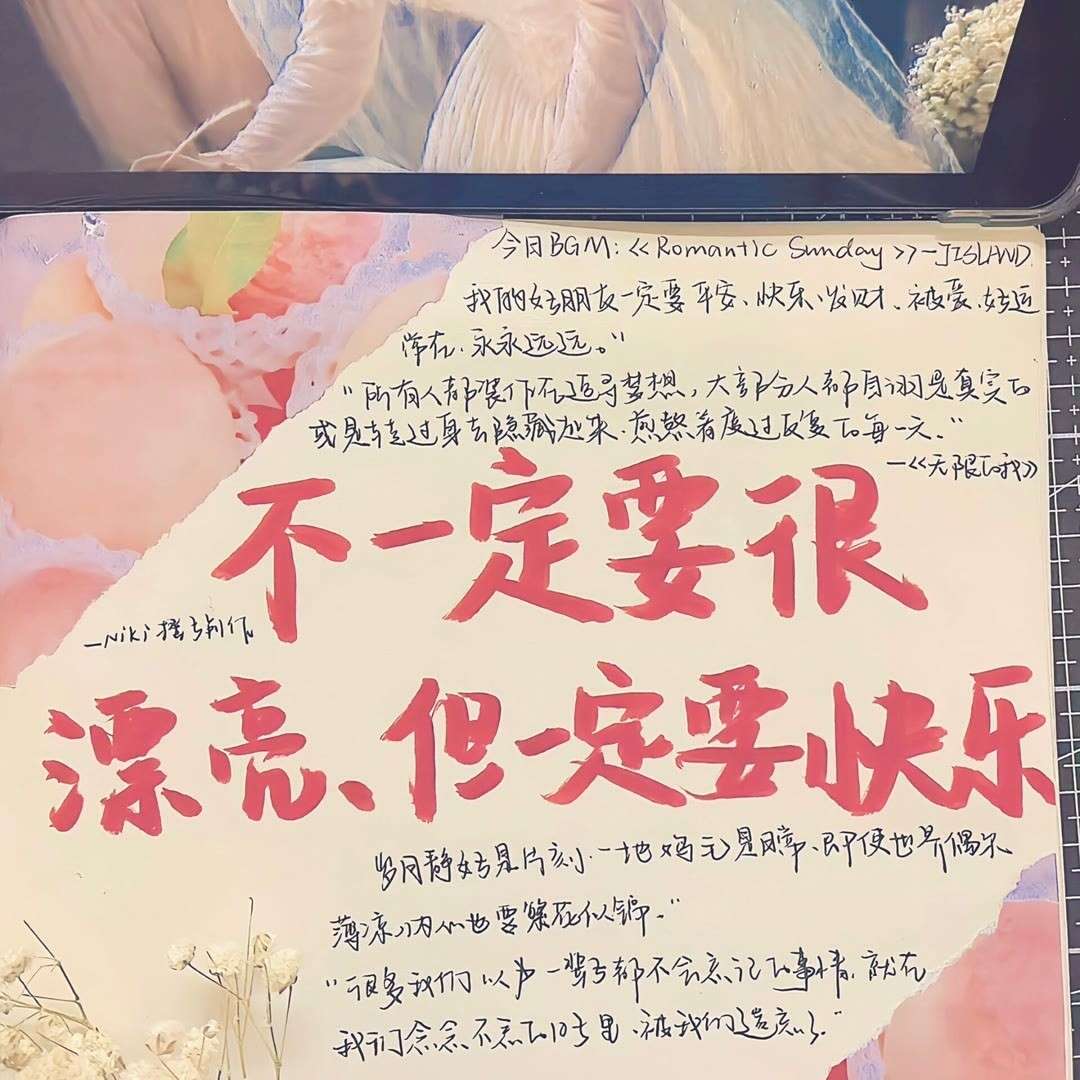 今日BGM:<<Romantic Sunday>>—JISLAND.
我的好朋友一定要平安、快乐、发财、被爱、好运
常在、永永远远。"
"所有人都装作在追寻梦想,大部分人都自诩是真实的
或是转过身去隐藏起来、煎熬着度过反复的每一天。"
—<<无限的我>>
不一定要很
—Niki
漂亮、但一定要快乐
岁月静好是片刻、一地鸡毛是日常、即使世界偶尔
薄凉、内心也要繁花似锦。"
"很多我们以为一辈子都不会忘记的事情,就在
我们念念不忘的日子里、被我们遗忘了。"